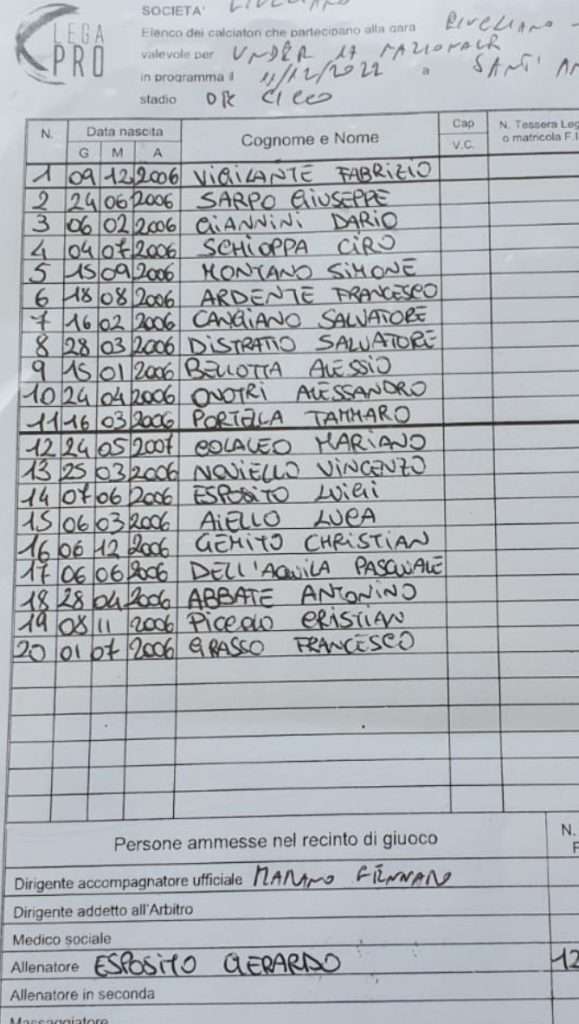 LEGA PRO
SOCIETA'
Elenco dei calciatori che partecipano alla gara
valevole per UNDER 17 NAZIONALE
in programma il 11/12/2022 a SANT'
stadio DE CICCO
N. Data nascita Cognome e Nome Cap N. Tessera Leg
G M A V.C. o matricola F.I
1 09 12 2006 VIGILANTE FABRIZIO
2 24 06 2006 SARPO GIUSEPPE
3 06 02 2006 GIANNINI DARIO
4 04 07 2006 SCHIOPPA CIRO
5 15 09 2006 MONTANO SIMONE
6 18 08 2006 ARDENTE FRANCESCO
7 16 02 2006 CANGIANO SALVATORE
8 28 03 2006 DISTRATIO SALVATORE
9 15 01 2006 BELLOTTA ALESSIO
10 24 04 2006 ONOTRI ALESSANDRO
11 16 03 2006 PORTELLA TAMMARO
12 24 05 2007 COLALEO MARIANO
13 25 03 2006 NOVIELLO VINCENZO
14 07 06 2006 ESPOSITO LUIGI
15 06 03 2006 AIELLO LUCA
16 06 12 2006 GEMITO CHRISTIAN
17 06 06 2006 DELL'AQUILA PASQUALE
18 28 04 2006 ABBATE ANTONINO
19 08 11 2006 PICCOLO CRISTIAN
20 01 07 2006 GRASSO FRANCESCO
Persone ammesse nel recinto di giuoco N.
Dirigente accompagnatore ufficiale
Dirigente addetto all'Arbitro
Medico sociale
Allenatore ESPOSITO GERARDO 12
Allenatore in seconda
Massaggiatore